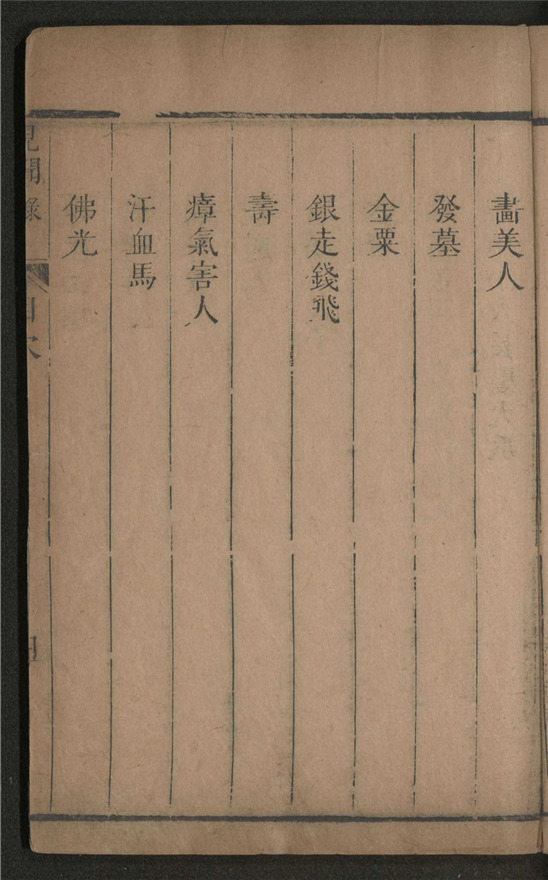 畵美人
發墓
金粟
銀走錢飛
壽
瘴氣害人
汗血馬
佛光
見聞錄
目次